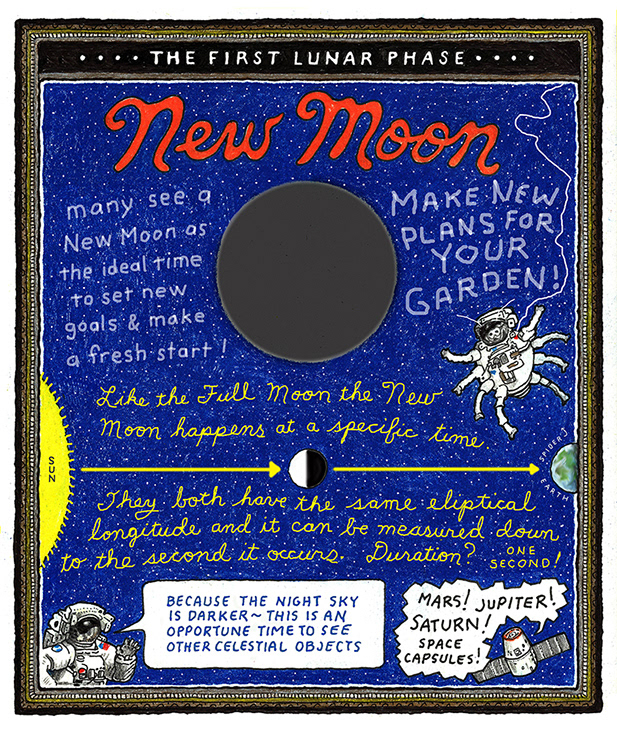 THE FIRST LUNAR PHASE
New Moon
many see a
New Moon as
the ideal time
to set new
goals & make
a fresh start!
MAKE NEW
PLANS FOR
YOUR
GARDEN!
Like the Full Moon the New
Moon happens at a specific time.
SUN
SPIDER J
EARTH
They both have the same eliptical
longitude and it can be measured down
to the second it occurs. Duration? ONE
SECOND!
BECAUSE THE NIGHT SKY
IS DARKER~THIS IS AN
OPPORTUNE TIME TO SEE
OTHER CELESTIAL OBJECTS
MARS! JUPITER!
SATURN!
SPACE
CAPSULES!